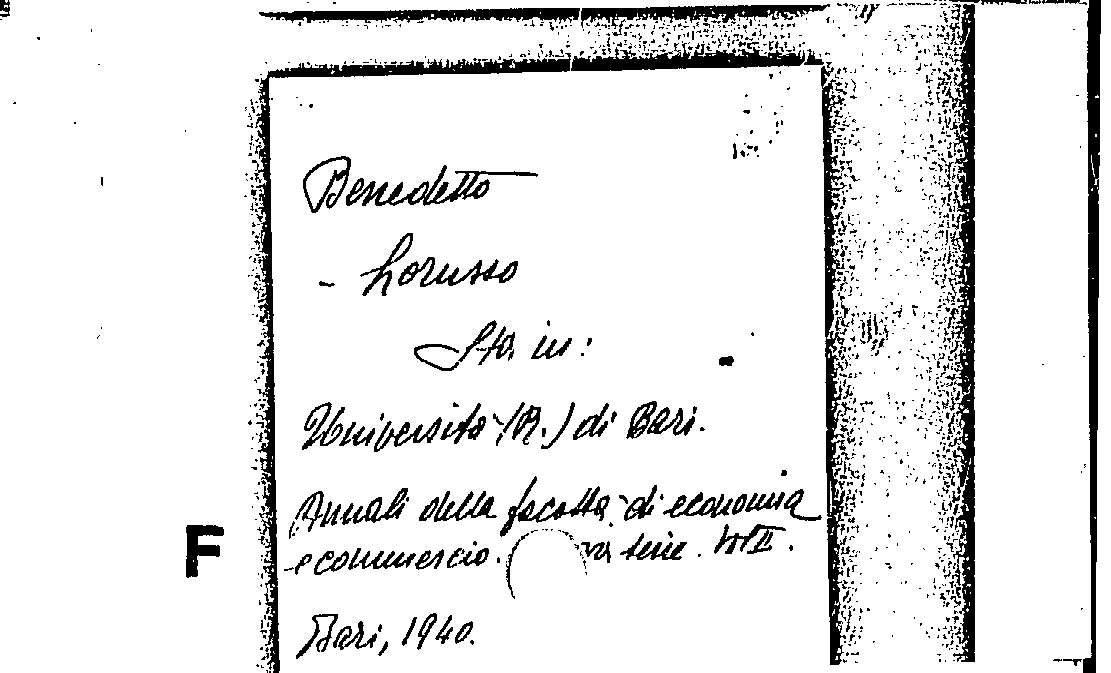 Benedetto
- Lorusso
Sta in:
Università (R.) di Bari.
Annali della facoltà di economia
e commercio. va serie. Vol II.
F
Bari, 1940.